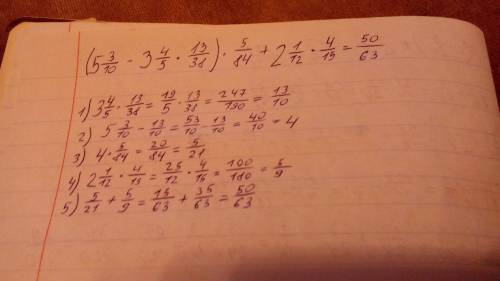 (5 3/10 - 3 4/5 · 13/38) · 5/84 + 2 1/12 · 4/15 = 50/63
1) 3 4/5 · 13/38 = 19/5 · 13/38 = 247/190 = 13/10
2) 5 3/10 - 13/10 = 53/10 - 13/10 = 40/10 = 4
3) 4 · 5/84 = 20/84 = 5/21
4) 2 1/12 · 4/15 = 25/12 · 4/15 = 100/180 = 5/9
5) 5/21 + 5/9 = 15/63 + 35/63 = 50/63